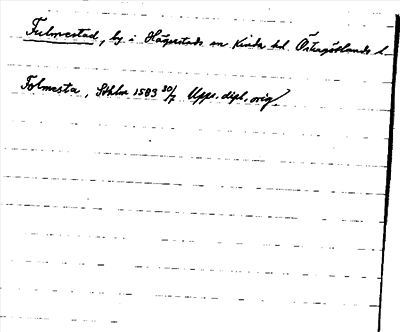 Fulmestad, by i Hägerstads sn Kinda hd. Östergötlands l.
Folmesta, Sthlm 1503 30/7 Upps. dipl. orig